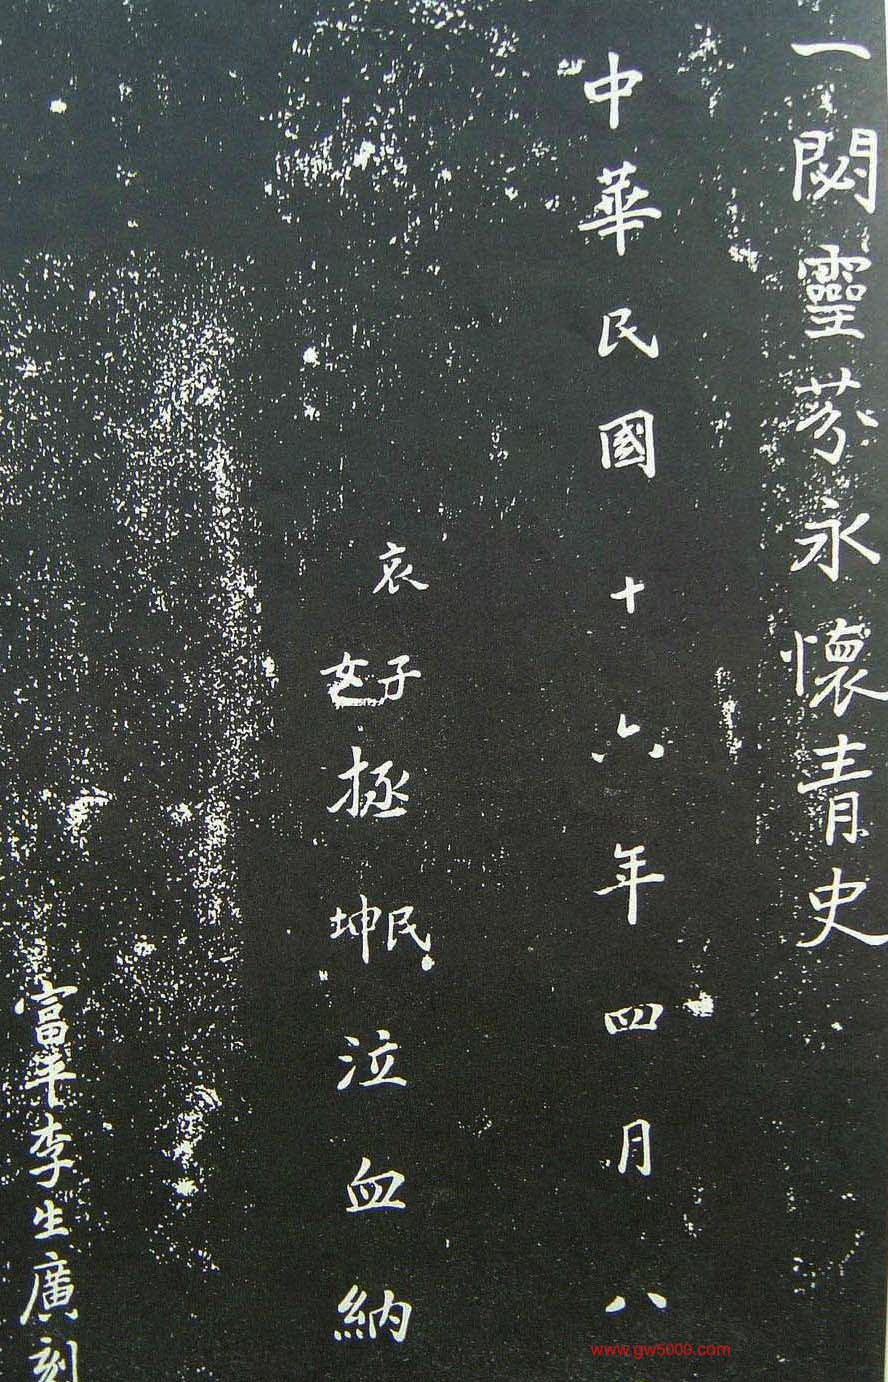 一閟靈芬永懷青史
中華民國十六年四月八
哀
子女拯民坤泣血納
富平李生廣刻
www.gw5000.com